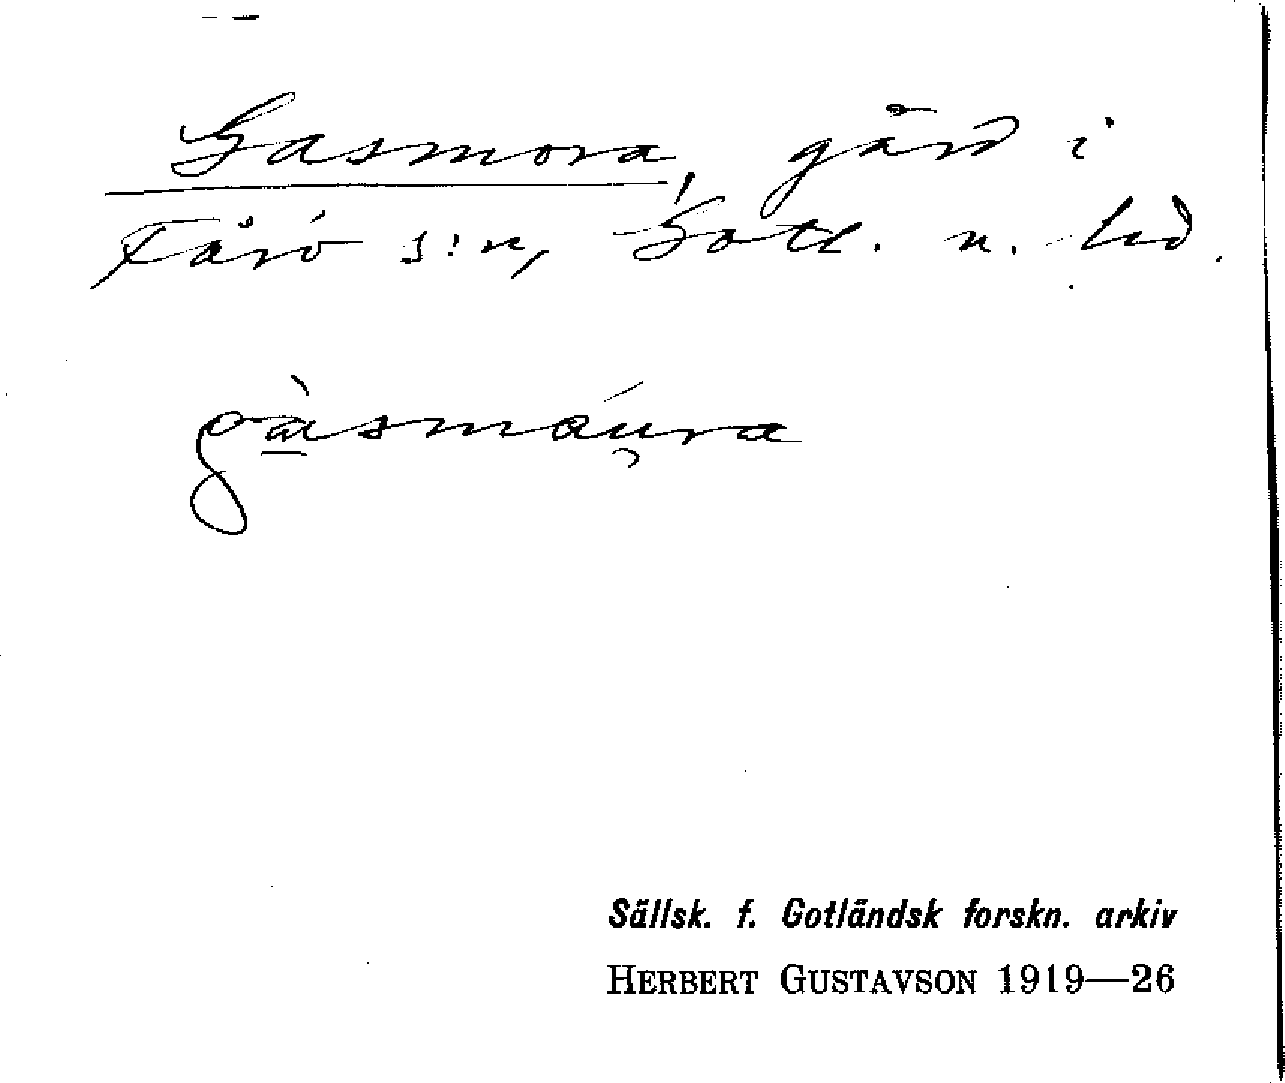 Gasmora, gård i
Fårö s:n, Gotl. n. hd.
gàsmáu̯ra
Sällsk. f. Gotländsk forskn. arkiv
HERBERT GUSTAVSON 1919—26